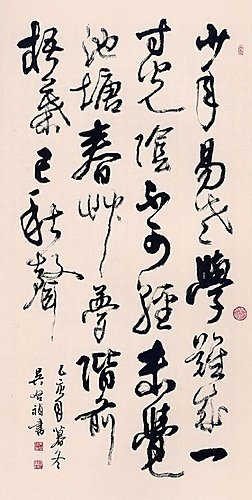 少年易老學難成一
寸光陰不可輕未覺
池塘春艸夢階前
梧葉已秋聲
乙暮冬
吳書